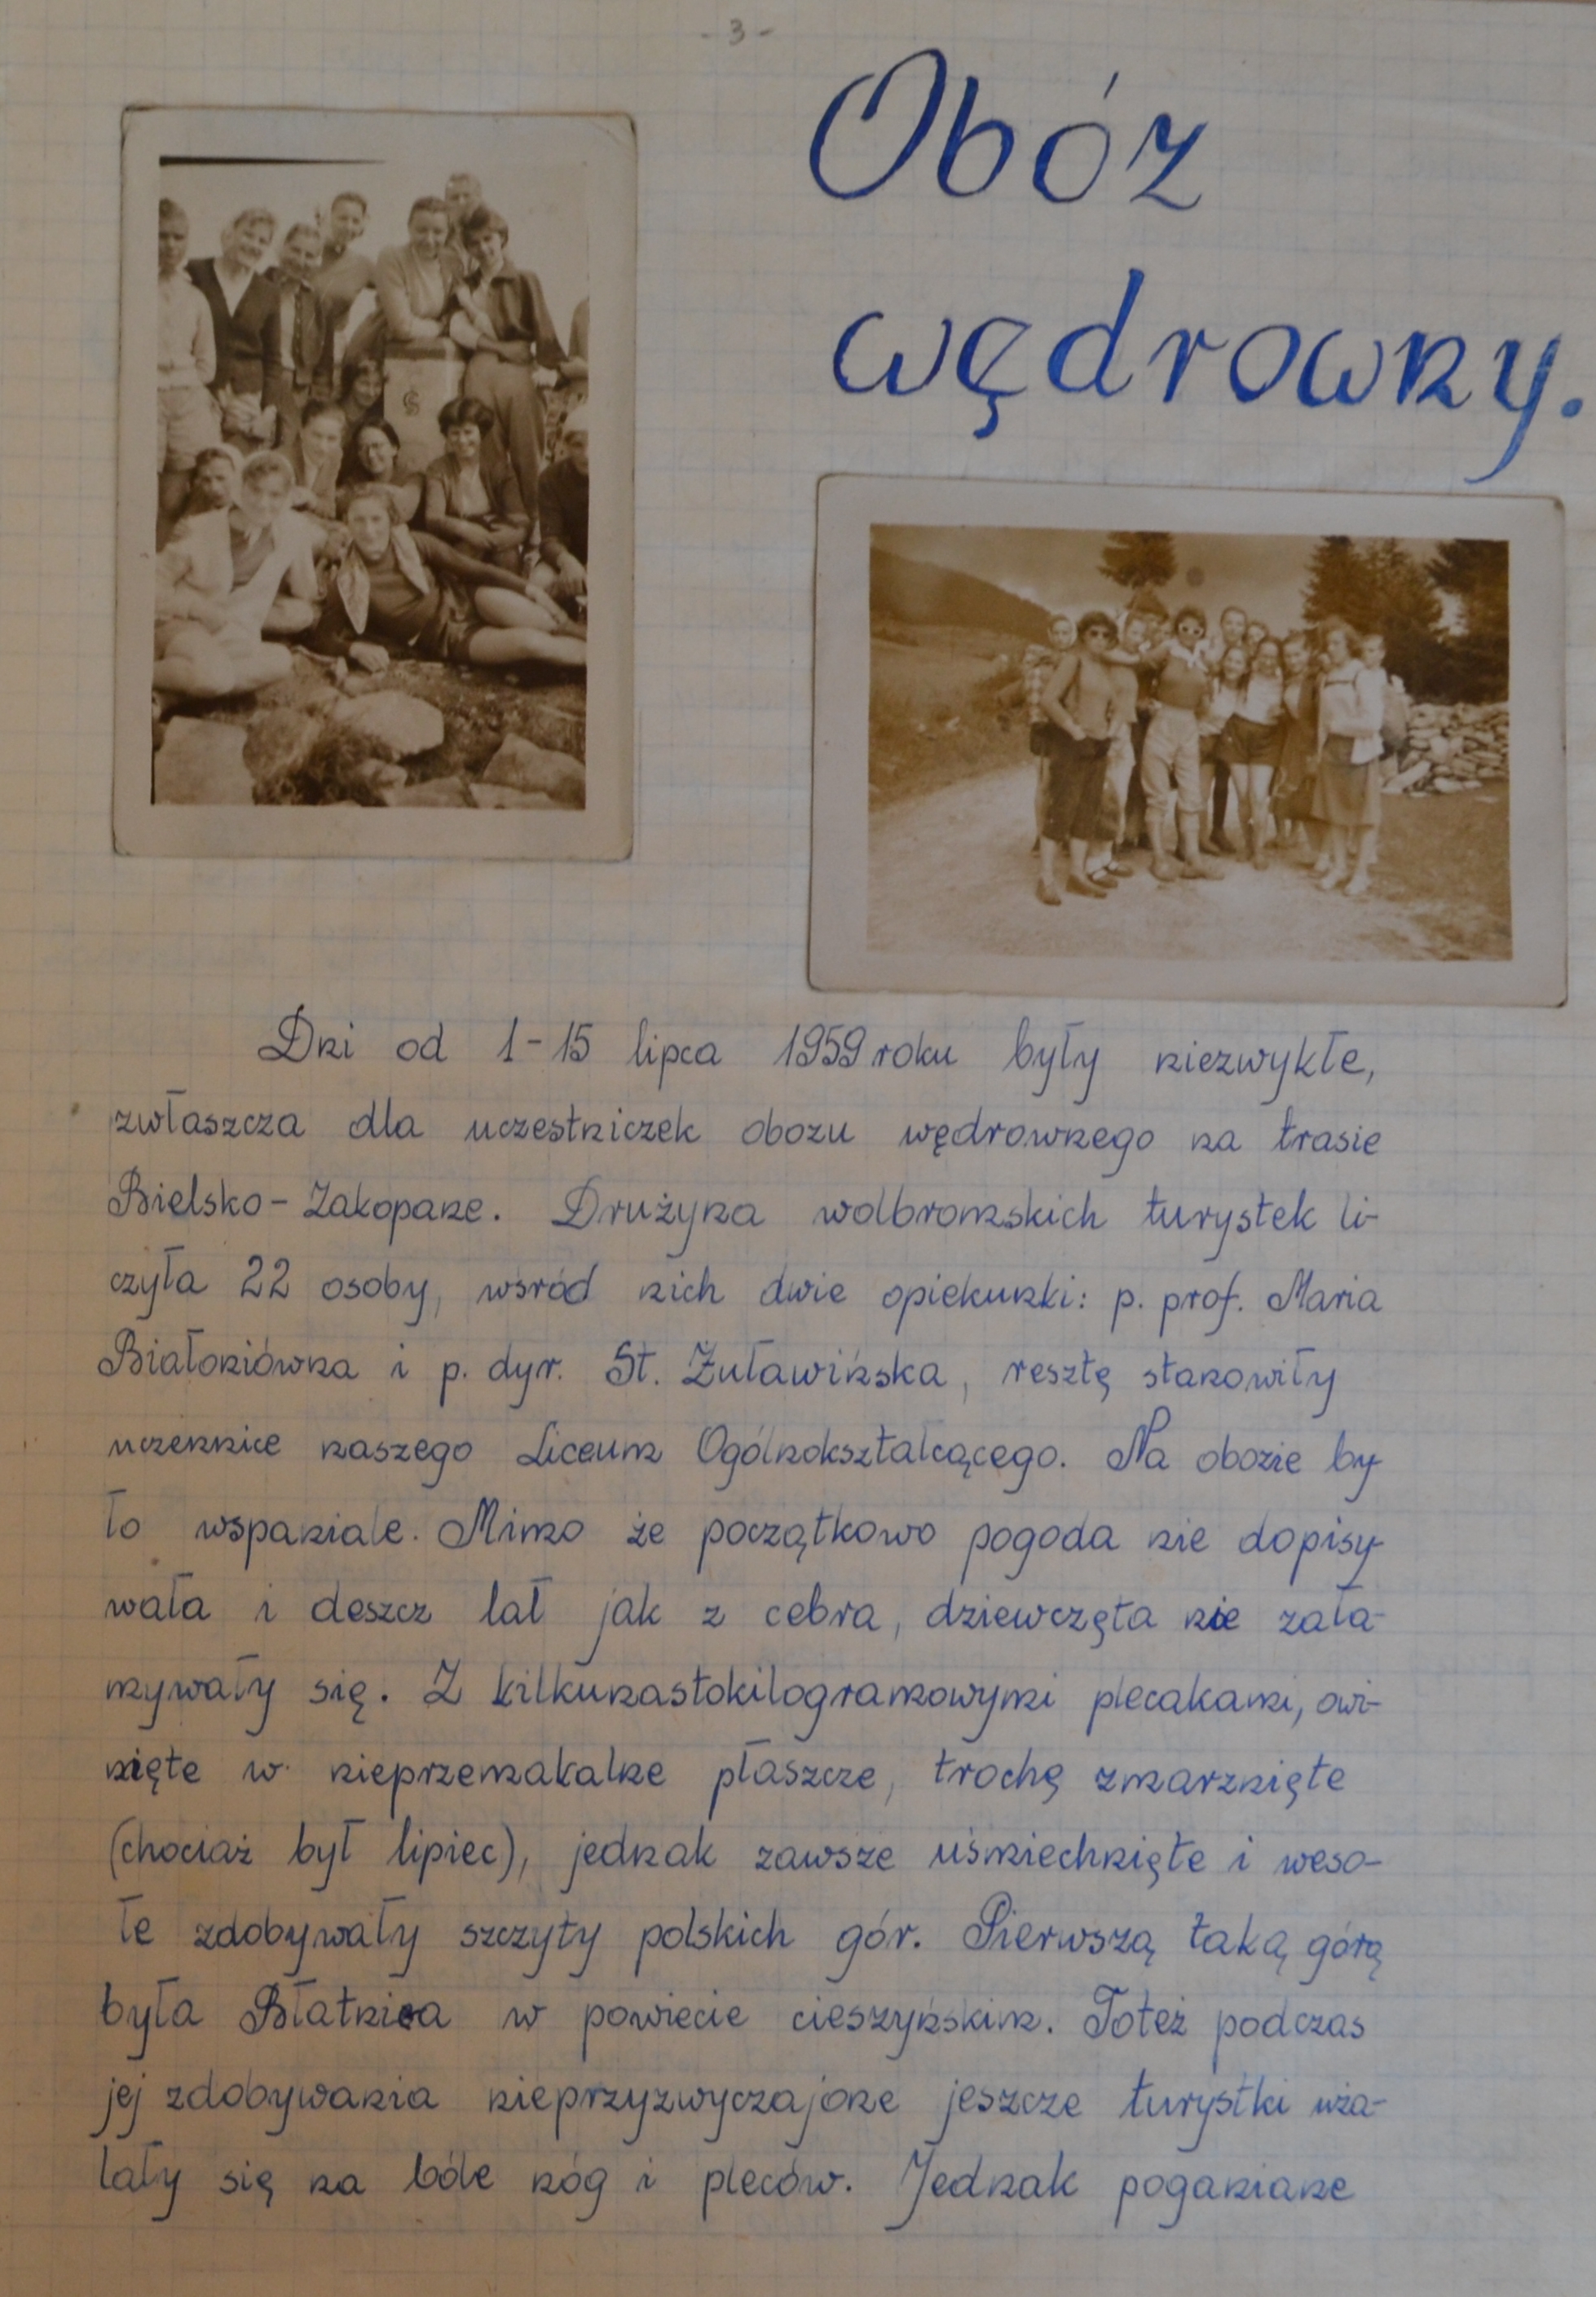 - 3 -
Obóz
wędrowny.
Dni od 1-15 lipca 1959 roku były niezwykłe,
zwłaszcza dla uczestniczek obozu wędrownego na trasie
Bielsko - Zakopane. Drużyna wolbromskich turystek li-
czyła 22 osoby, wśród nich dwie opiekunki: p. prof. Maria
Białoniówna i p. dyr. St. Żuławińska, resztę stanowiły
uczennice naszego Liceum Ogólnokształcącego. Na obozie by-
ło wspaniale. Mimo że początkowo pogoda nie dopisy-
wała i deszcz lał jak z cebra, dziewczęta nie zała-
mywały się. Z kilkunastokilogramowymi plecakami, owi-
nięte w nieprzemakalne płaszcze, trochę zmarznięte
(chociaż był lipiec), jednak zawsze uśmiechnięte i weso-
łe zdobywały szczyty polskich gór. Pierwszą taką górą
była Błatnica w powiecie cieszyńskim. Toteż podczas
jej zdobywania nieprzyzwyczajone jeszcze turystki uża-
lały się na bóle nóg i pleców. Jednak poganiane